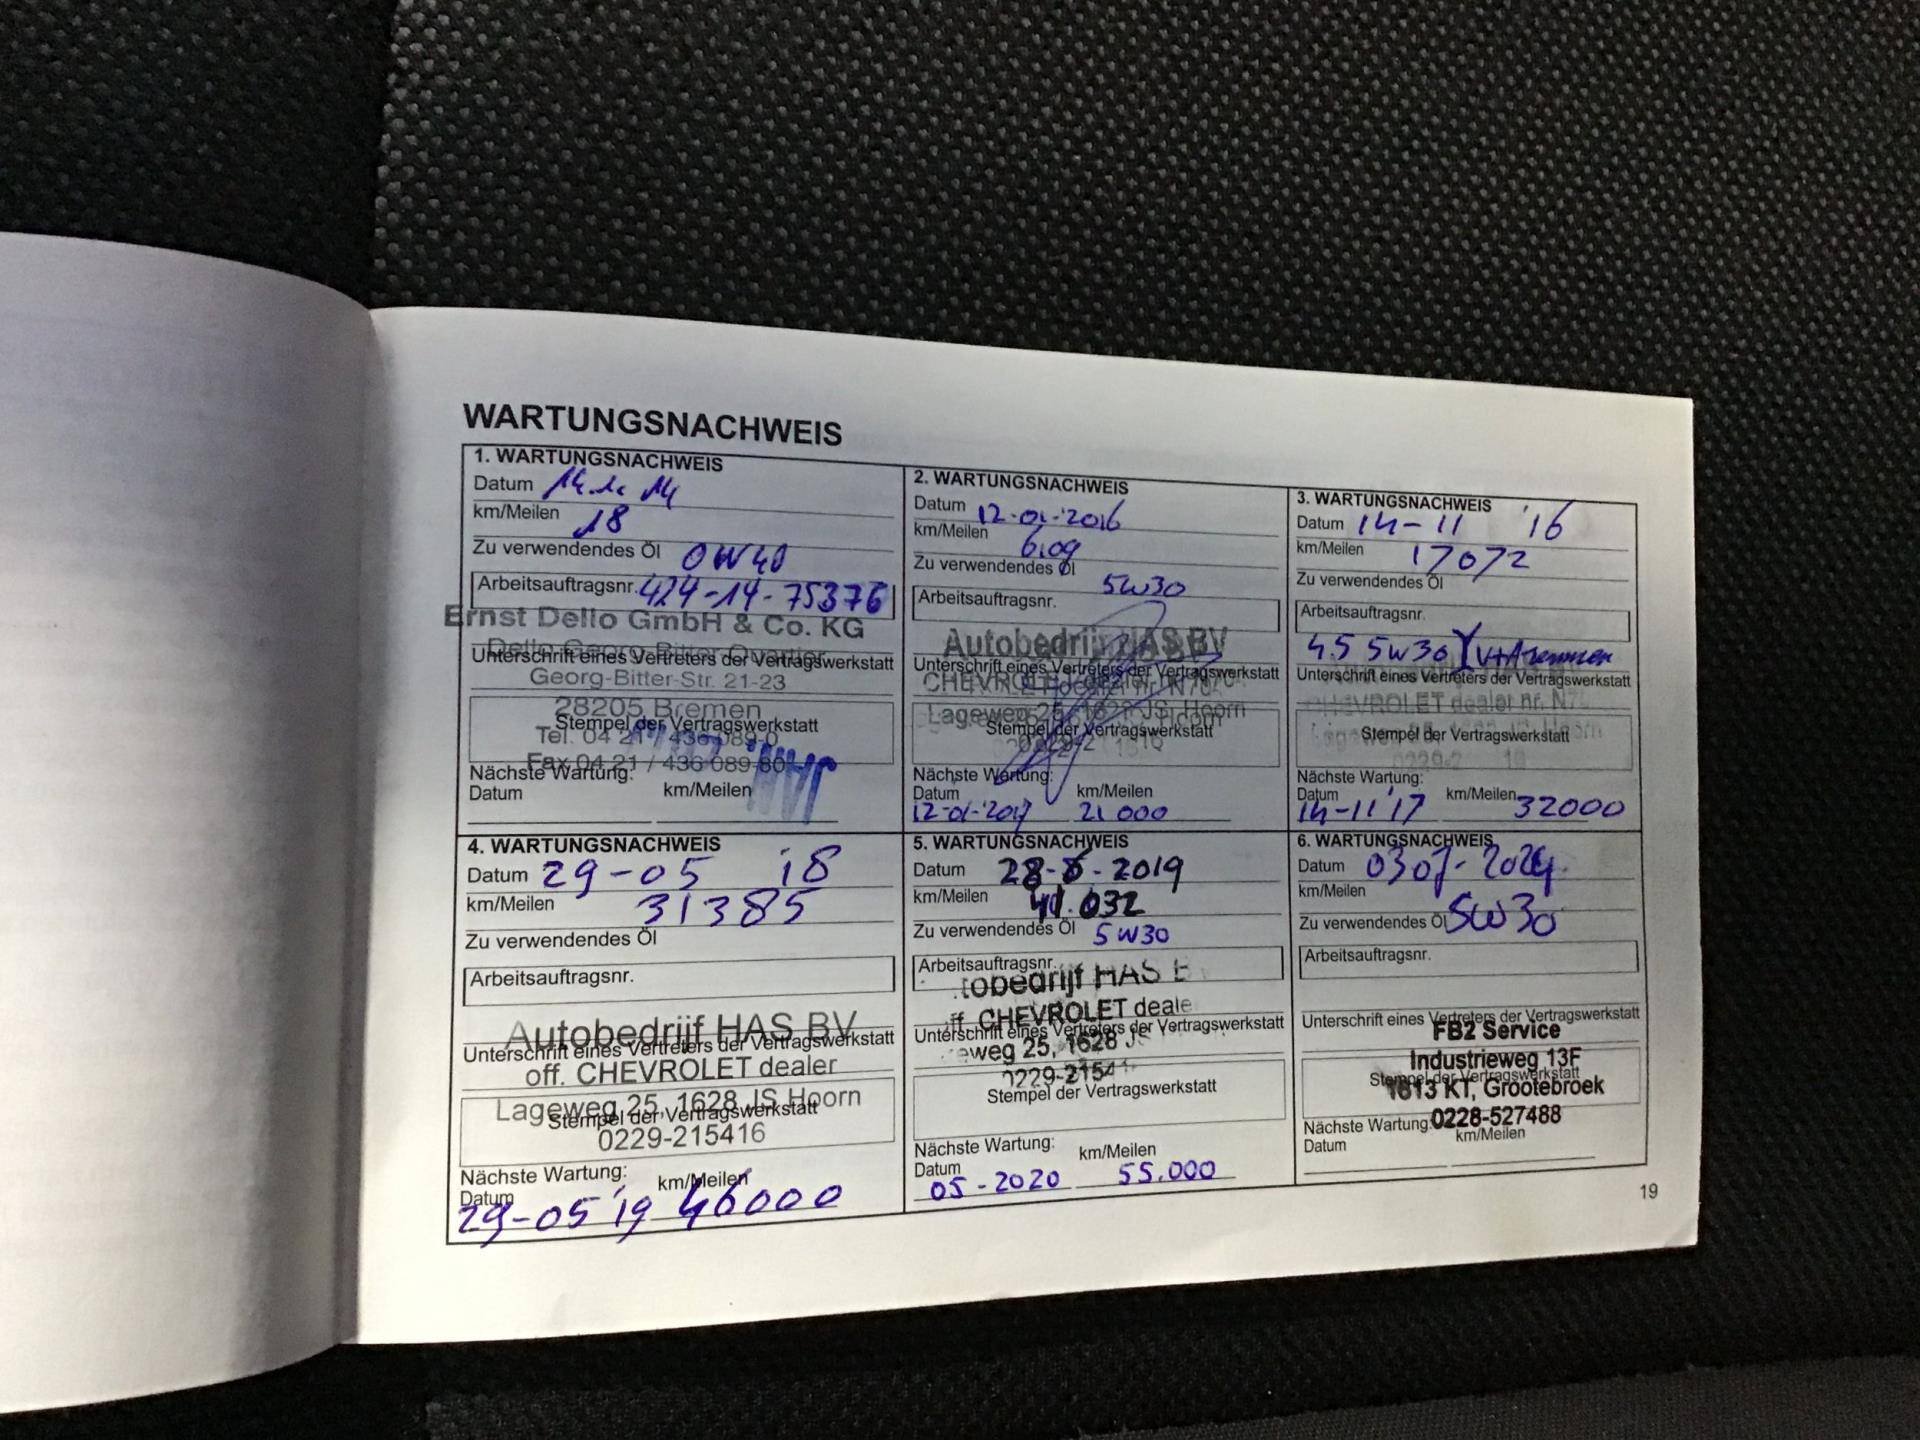 WARTUNGSNACHWEIS
1. WARTUNGSNACHWEIS
Datum 14. 14
km/Meilen 18
Zu verwendendes Öl 0W40
Arbeitsauftragsnr. 424-14-75376
Ernst Dello GmbH & Co. KG
Dello Georg-Bitter Quartier
Unterschrift eines Vertreters der Vertragswerkstatt
Georg-Bitter-Str. 21-23
28205 Bremen
Stempel der Vertragswerkstatt
Tel. 04 21 / 436 089-0
Fax 04 21 / 436 089-80
Nächste Wartung:
Datum km/Meilen
2. WARTUNGSNACHWEIS
Datum 12-01-'2016
km/Meilen
Zu verwendendes Öl
5W30
Arbeitsauftragsnr.
Autobedrijf HAS BV
Unterschrift eines Vertreters der Vertragswerkstatt
CHEVROLET dealer nr. N70
Lageweg 25, 1628 JS Hoorn
Stempel der Vertragswerkstatt
Nächste Wartung:
Datum km/Meilen
12-01-'2017 21000
3. WARTUNGSNACHWEIS
Datum 14-11 '16
km/Meilen 17072
Zu verwendendes Öl
Arbeitsauftragsnr.
4.5 5W30
Unterschrift eines Vertreters der Vertragswerkstatt
CHEVROLET dealer nr. N7
Stempel der Vertragswerkstatt
Nächste Wartung:
Datum km/Meilen
14-11'17 32000
4. WARTUNGSNACHWEIS
Datum 29-05 '18
km/Meilen 31385
Zu verwendendes Öl
Arbeitsauftragsnr.
Autobedrijf HAS BV
Unterschrift eines Vertreters der Vertragswerkstatt
off. CHEVROLET dealer
Lageweg 25, 1628 JS Hoorn
Stempel der Vertragswerkstatt
0229-215416
Nächste Wartung:
Datum km/Meilen
29-05'19 46000
5. WARTUNGSNACHWEIS
Datum 28-8-2019
km/Meilen 41.032
Zu verwendendes Öl 5W30
Arbeitsauftragsnr.
tobedrijf HAS B
ff. CHEVROLET deale
Unterschrift eines Vertreters der Vertragswerkstatt
eweg 25, 1628 JS
0229-2154
Stempel der Vertragswerkstatt
Nächste Wartung:
Datum km/Meilen
05-2020 55.000
6. WARTUNGSNACHWEIS
Datum
km/Meilen
Zu verwendendes Öl 5W30
Arbeitsauftragsnr.
Unterschrift eines Vertreters der Vertragswerkstatt
FB2 Service
Industrieweg 13F
Stempel der Vertragswerkstatt
1613 KT, Grootebroek
0228-527488
Nächste Wartung:
Datum km/Meilen
19